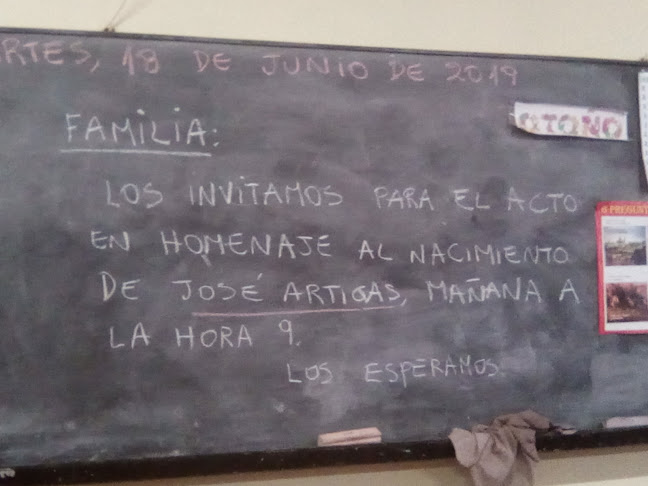 ARTES, 18 DE JUNIO DE 2019
OTOÑO
FAMILIA:
LOS INVITAMOS PARA EL ACTO
EN HOMENAJE AL NACIMIENTO
DE JOSÉ ARTIGAS, MAÑANA A
LA HORA 9.
LOS ESPERAMOS.